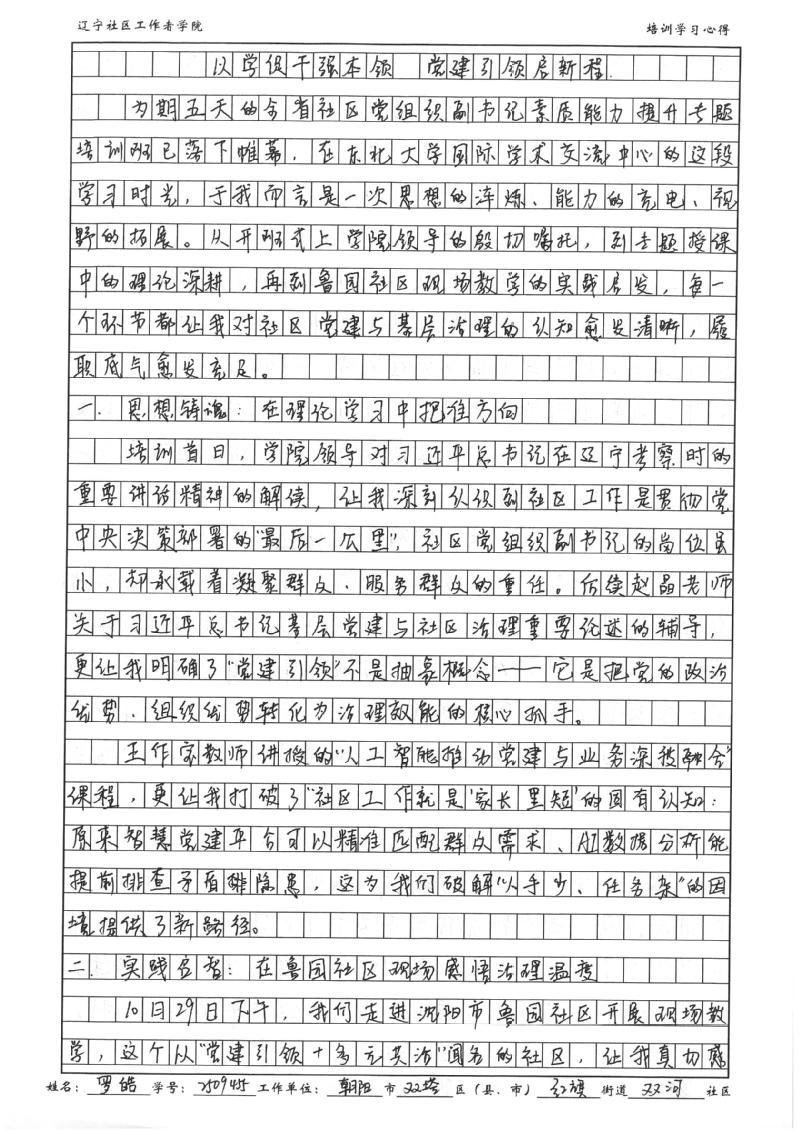 辽宁社区工作者学院 培训学习心得
以学促干强本领 党建引领启新程.
为期五天的全省社区党组织副书记素质能力提升专题
培训班已落下帷幕，在东北大学国际学术交流中心的这段
学习时光，于我而言是一次思想的淬炼、能力的充电、视
野的拓展。从开班式上学院领导的殷切嘱托，到专题授课
中的理论深耕，再到鲁园社区现场教学的实践启发，每一
个环节都让我对社区党建与基层治理的认知愈发清晰，履
职底气愈发充足。
一. 思想铸魂：在理论学习中把准方向
培训首日，学院领导对习近平总书记在辽宁考察时的
重要讲话精神的解读，让我深刻认识到社区工作是贯彻党
中央决策部署的“最后一公里”，社区党组织副书记的岗位虽
小，却承载着凝聚群众、服务群众的重任。后续赵晶老师
关于习近平总书记基层党建与社区治理重要论述的辅导，
更让我明确了“党建引领”不是抽象概念——它是把党的政治
优势、组织优势转化为治理效能的核心抓手。
王作宝教师讲授的“人工智能推动党建与业务深技融合”
课程，更让我打破了“社区工作就是‘家长里短’的固有认知：
原来智慧党建平台可以精准匹配群众需求、AI数据分析能
提前排查矛盾排隐患，这为我们破解“人手少、任务杂”的困
境提供了新路径。
二. 实践启智：在鲁园社区现场感悟治理温度
10月29日下午，我们走进沈阳市鲁园社区开展现场教
学，这个以“党建引领+多元共治”闻名的社区，让我真切感
姓名：罗皓 学号：250945 工作单位：朝阳市双塔区（县、市）红旗街道双河社区